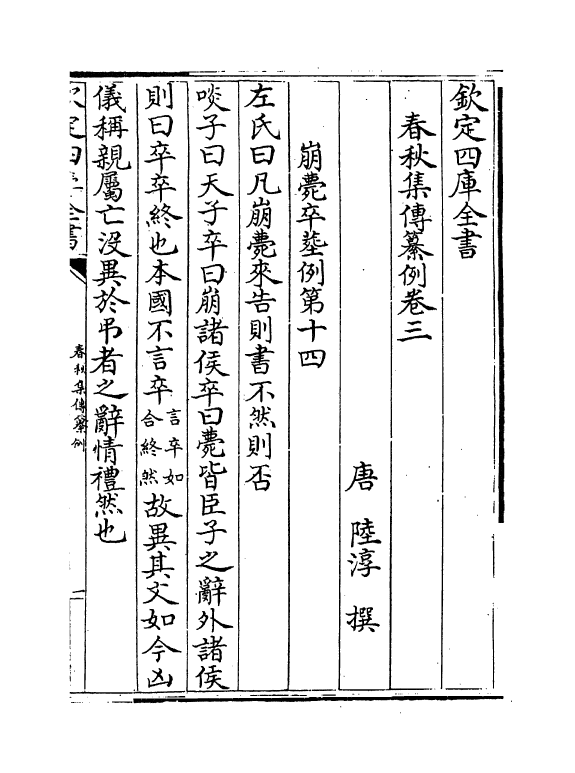 欽定四庫全書
春秋集傳纂例卷三
唐　陸淳　撰
崩薨卒塟例第十四
左氏曰凡崩薨來告則書不然則否
啖子曰天子卒曰崩諸侯卒曰薨皆臣子之辭外諸侯
則曰卒卒終也本國不言卒言卒如合終然故異其文如今凶
儀稱親屬亡沒異於弔者之辭情禮然也
欽定四庫全書
春秋集傳纂例
一